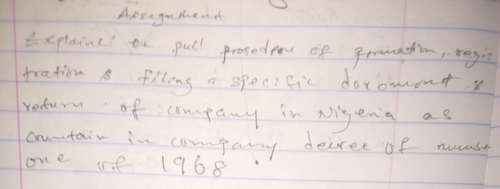 Assignment
Explaine a full prosedure of formation, regis
tration & filling a specific doroment &
return of company in Nigeria as
countain in company decree of numb
one of 1968.